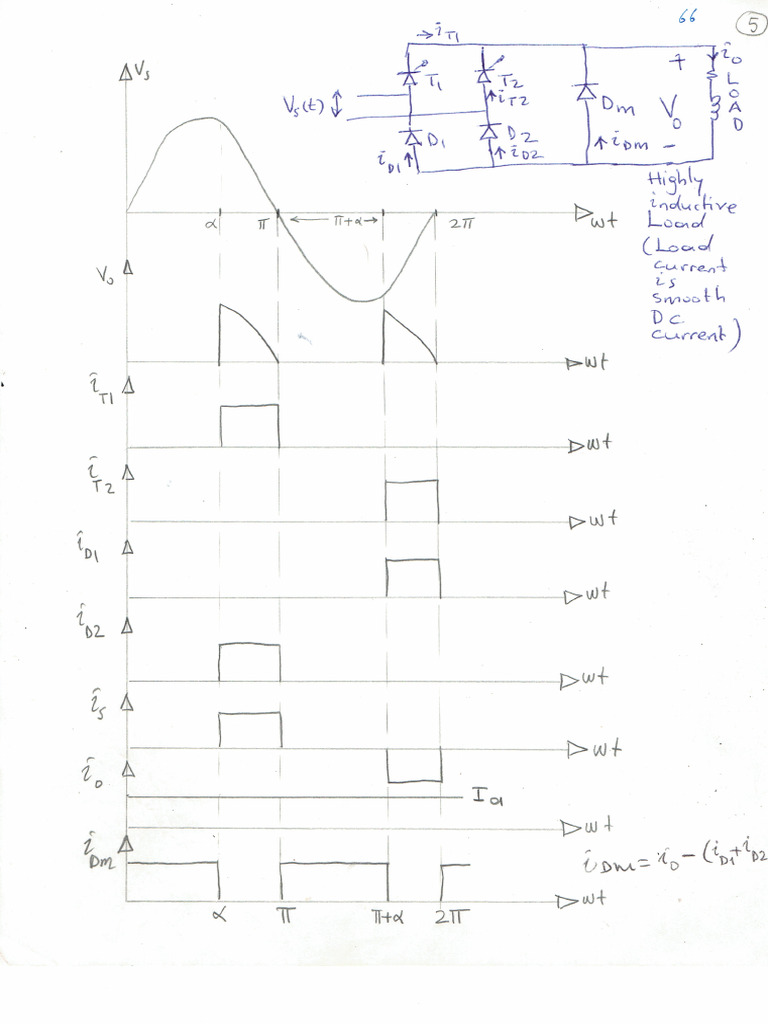 66
5
i_T1
T1
T2
i_T2
Vs(t)
D1
D2
i_D1
i_D2
Dm
i_Dm
+
Vo
-
i_o
LOAD
Highly
inductive
Load
(Load
current
is
smooth
DC
current)
Vs
α π ←π+α→ 2π ωt
Vo
ωt
i_T1
ωt
i_T2
ωt
i_D1
ωt
i_D2
ωt
i_s
ωt
i_o
Ia
ωt
i_Dm
i_Dm = i_o - (i_D1 + i_D2
ωt
α π π+α 2π